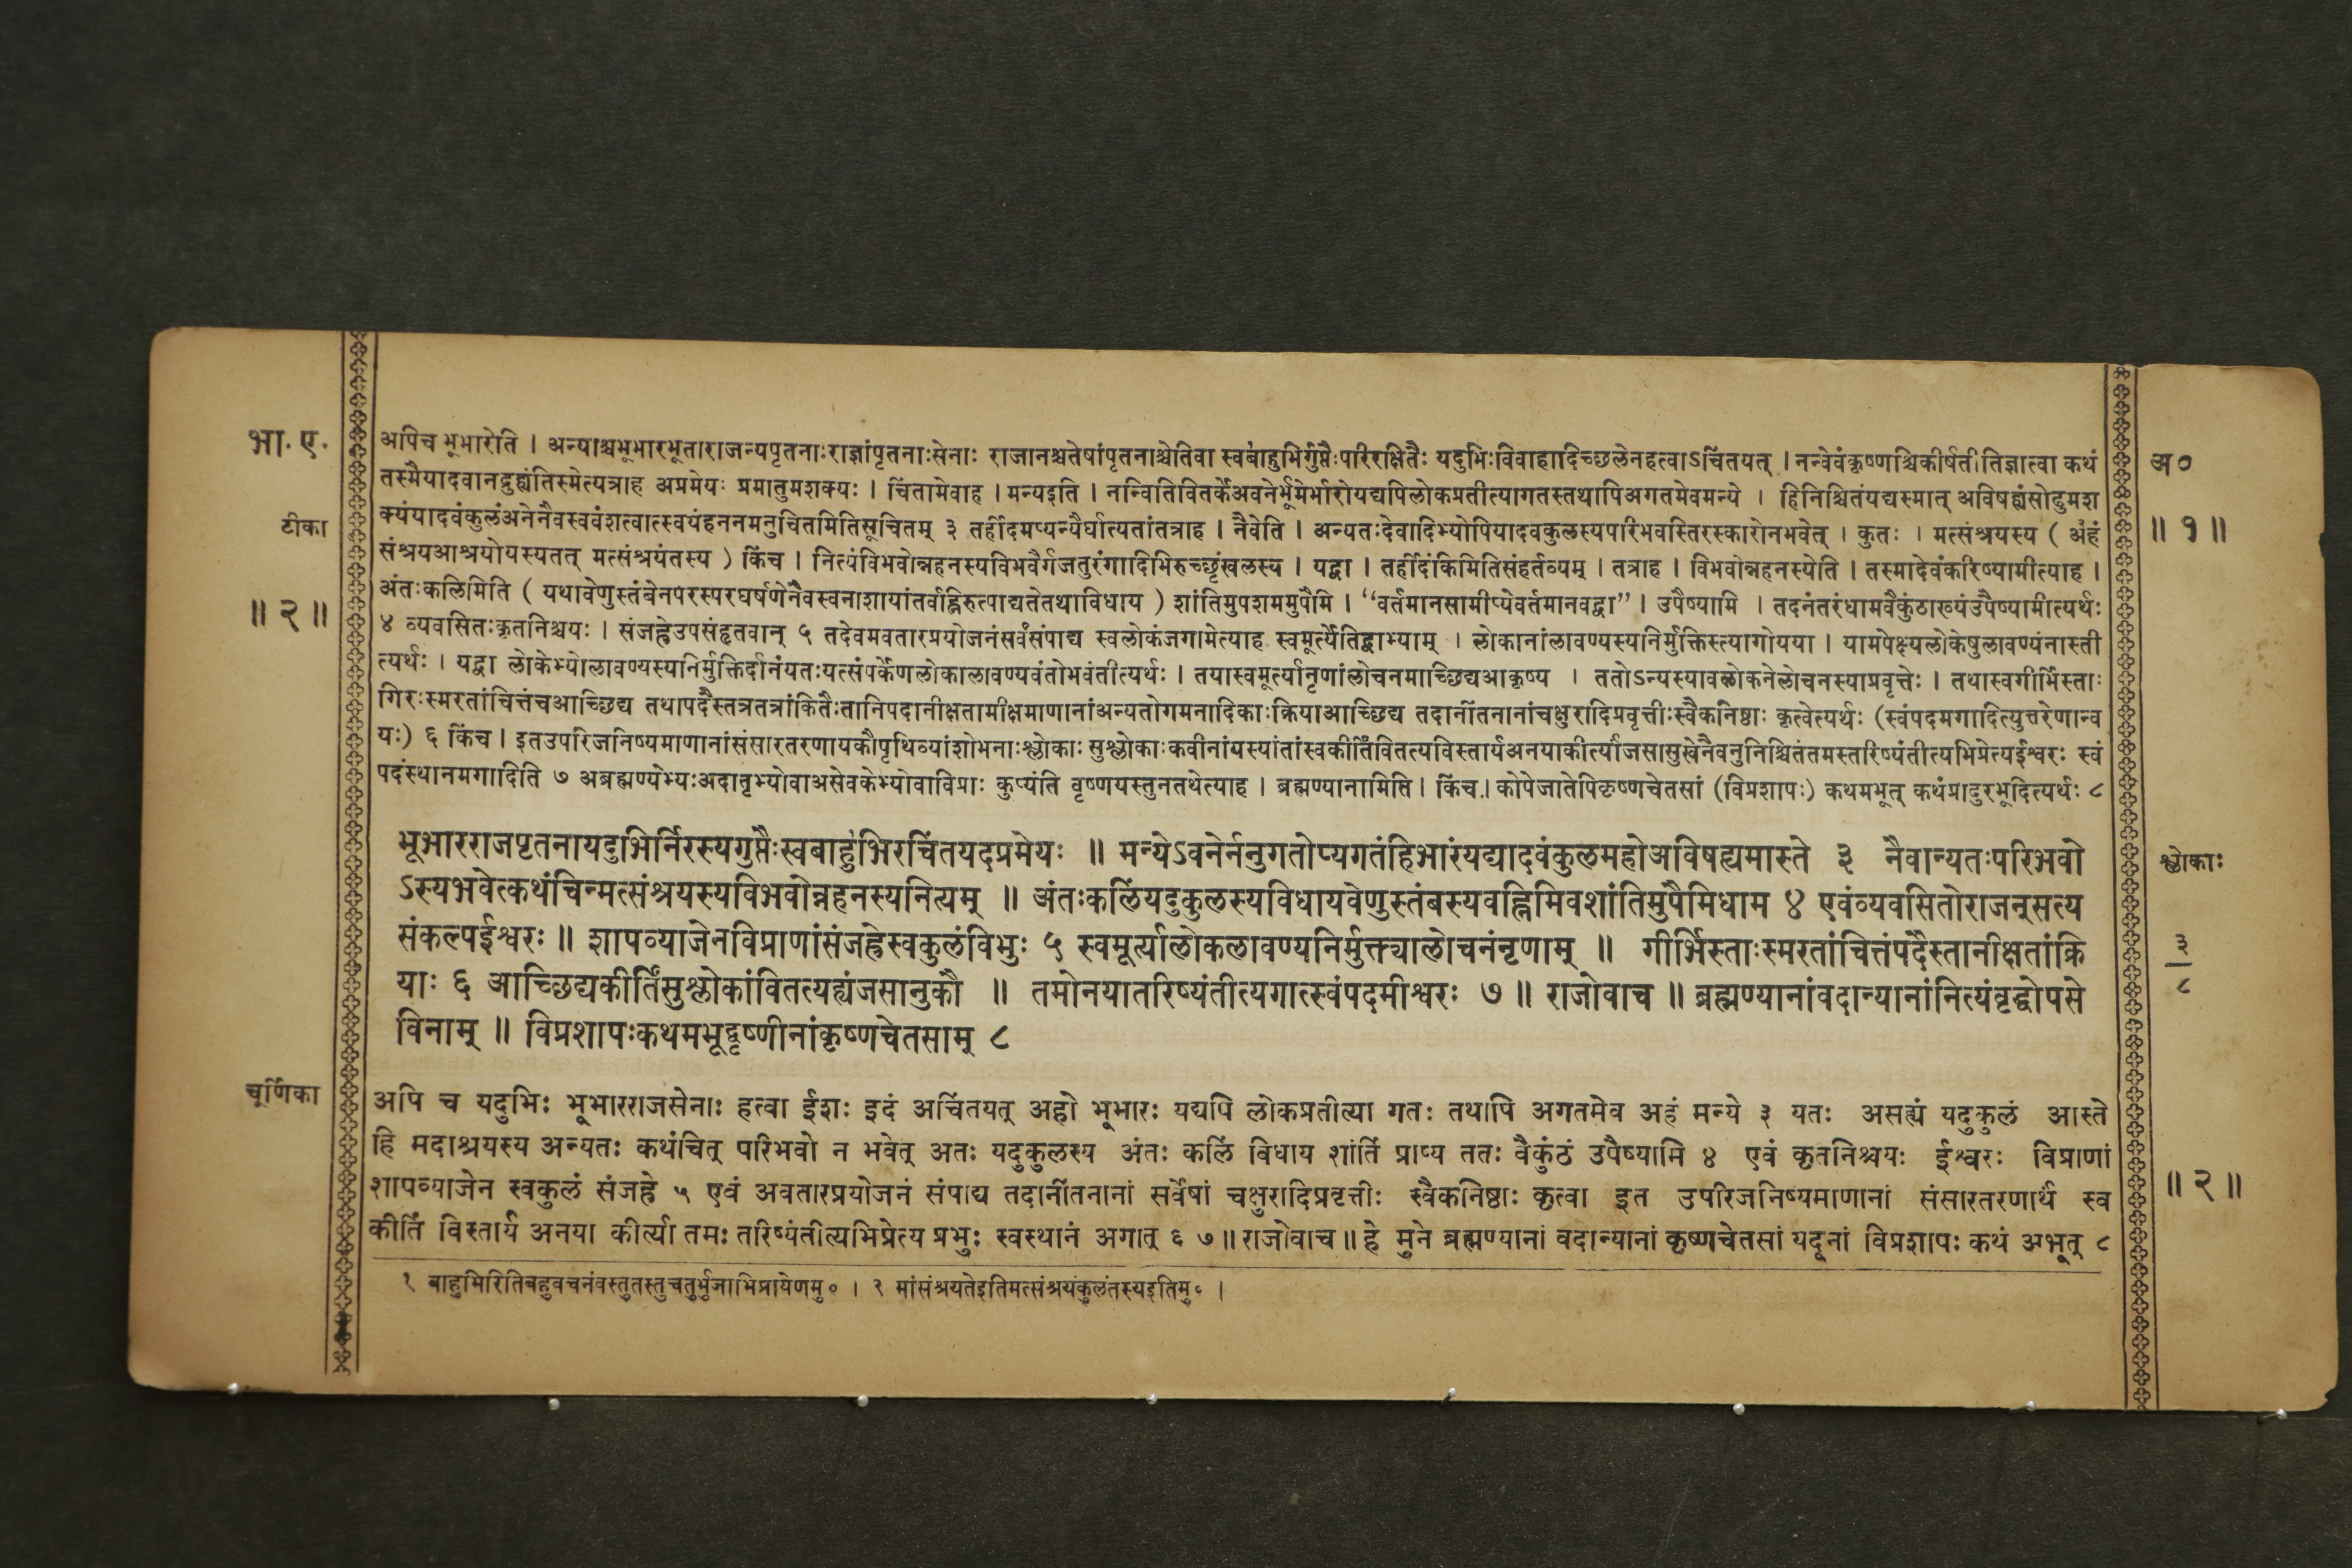 भा. ए.
अपिच भूभारेति । अन्याश्चभूभारभूताराजन्यपृतनाःराज्ञांपृतनाःसेनाः राजानश्चतेषांपृतनाश्चेतिवा स्वबाहुभिर्गुप्तैःपरिरक्षितैः यदुभिःविवाहादिच्छलेनहत्वाऽचिंतयत् । नन्वेवंकृष्णश्चिकीर्षतीतिज्ञात्वा कथं
अ०
तस्मैयादवानद्रुह्यंतिस्मेत्यत्राह अप्रमेयः प्रमातुमशक्यः । चिंतामेवाह । मन्यइति । नन्वितिवितर्केअवनेर्भूमेर्भारोयद्यपिलोकप्रतीत्यागतस्तथापिअगतमेवमन्ये । हिनिश्चितंयद्यस्मात् अविषह्यंसोढुमश
टीका
क्यंयादवंकुलंअनेनैवस्ववंशत्वात्स्वयंहननमनुचितमितिसूचितम् ३ तर्हीदमप्यन्यैर्घात्यतांतत्राह । नैवेति । अन्यतःदेवादिभ्योपियादवकुलस्यपरिभवस्तिरस्कारोनभवेत् । कुतः । मत्संश्रयस्य ( अंहं
॥ १ ॥
संश्रयआश्रयोयस्यतत् मत्संश्रयंतस्य ) किंच । नित्यंविभवोन्नहनस्यविभवैर्गजतुरंगादिभिरुच्छृंखलस्य । यद्वा । तर्हीदंकिमितिसंहर्तव्यम् । तत्राह । विभवोन्नहनस्येति । तस्मादेवंकरिष्यामीत्याह ।
॥ २ ॥
अंतःकलिमिति ( यथावेणुस्तंबेनपरस्परघर्षणेनैवस्वनाशायांतर्वह्निरुत्पाद्यतेतथाविधाय ) शांतिमुपशममुपैमि । “वर्तमानसामीप्येवर्तमानवद्वा” । उपैष्यामि । तदनंतरंधामवैकुंठाख्यंउपैष्यामीत्यर्थः
४ व्यवसितःकृतनिश्चयः । संजह्नेउपसंहृतवान् ५ तदेवमवतारप्रयोजनंसर्वंसंपाद्य स्वलोकंजगामेत्याह स्वमूर्त्येतिद्वाभ्याम् । लोकानांलावण्यस्यनिर्मुक्तिस्त्यागोयया । यामपेक्ष्यलोकेषुलावण्यंनास्ती
त्यर्थः । यद्वा लोकेभ्योलावण्यस्यनिर्मुक्तिर्दानंयतःयत्संपर्केणलोकालावण्यवंतोभवंतीत्यर्थः । तयास्वमूर्त्यानृणांलोचनमाच्छिद्यआकृष्य । ततोऽन्यस्यावलोकनेलोचनस्याप्रवृत्तेः । तथास्वगीर्भिस्ताः
गिरःस्मरतांचित्तंचआच्छिद्य तथापदैस्तत्रतत्रांकितैःतानिपदानीक्षतामीक्षमाणानांअन्यतोगमनादिकाःक्रियाआच्छिद्य तदानींतनानांचक्षुरादिप्रवृत्तीःस्वैकनिष्ठाः कृत्वेत्यर्थः (स्वंपदमगादित्युत्तरेणान्व
यः) ६ किंच । इतउपरिजनिष्यमाणानांसंसारतरणायकौपृथिव्यांशोभनाःश्लोकाः सुश्लोकाःकवीनांयस्यांतांस्वकीर्तिंवितत्यविस्तार्यअनयाकीर्त्यांजसासुखेनैवनुनिश्चितंतमस्तरिष्यंतीत्यभिप्रेत्यईश्वरः स्वं
पदंस्थानमगादिति ७ अब्रह्मण्येभ्यःअदातृभ्योवाअसेवकेभ्योवाविप्राः कुप्यंति वृष्णयस्तुनतथेत्याह । ब्रह्मण्यानामिति । किंच । कोपेजातेपिकृष्णचेतसां (विप्रशापः) कथमभूत् कथंप्रादुरभूदित्यर्थः ८
भूभारराजपृतनायदुभिर्निरस्यगुप्तैःस्वबाहु१भिरचिंतयदप्रमेयः ॥ मन्येऽवनेर्ननुगतोप्यगतंहिभारंयद्यादवंकुलमहोअविषह्यमास्ते ३ नैवान्यतःपरिभवो
श्लोकाः
ऽस्यभवेत्कथंचिन्मत्संश्रयस्यविभवोन्नहनस्यनित्यम् ॥ अंतःकलिंयदुकुलस्यविधायवेणुस्तंबस्यवह्निमिवशांतिमुपैमिधाम ४ एवंव्यवसितोराजन्सत्य
संकल्पईश्वरः ॥ शापव्याजेनविप्राणांसंजह्नेस्वकुलंविभुः ५ स्वमूर्त्यालोकलावण्यनिर्मुक्त्यालोचनंनृणाम् ॥ गीर्भिस्ताःस्मरतांचित्तंपदैस्तानीक्षतांक्रि
३
८
याः ६ आच्छिद्यकीर्तिंसुश्लोकांवितत्यह्यंजसानुकौ ॥ तमोनयातरिष्यंतीत्यगात्स्वंपदमीश्वरः ७ ॥ राजोवाच ॥ ब्रह्मण्यानांवदान्यानांनित्यंवृद्धोपसे
विनाम् ॥ विप्रशापःकथमभूद्वृष्णीनांकृष्णचेतसाम् ८
चूर्णिका
अपि च यदुभिः भूभारराजसेनाः हत्वा ईशः इदं अचिंतयत् अहो भूभारः यद्यपि लोकप्रतीत्या गतः तथापि अगतमेव अहं मन्ये ३ यतः असह्यं यदुकुलं आस्ते
हि मदाश्रयस्य अन्यतः कथंचित् परिभवो न भवेत् अतः यदुकुलस्य अंतः कलिं विधाय शांतिं प्राप्य ततः वैकुंठं उपैष्यामि ४ एवं कृतनिश्चयः ईश्वरः विप्राणां
शापव्याजेन स्वकुलं संजह्रे ५ एवं अवतारप्रयोजनं संपाद्य तदानींतनानां सर्वेषां चक्षुरादिप्रवृत्तीः स्वैकनिष्ठाः कृत्वा इत उपरिजनिष्यमाणानां संसारतरणार्थं स्व
॥ २ ॥
कीर्तिं विस्तार्य अनया कीर्त्या तमः तरिष्यंतीत्यभिप्रेत्य प्रभुः स्वस्थानं अगात् ६ ७ ॥ राजोवाच ॥ हे मुने ब्रह्मण्यानां वदान्यानां कृष्णचेतसां यदूनां विप्रशापः कथं अभूत् ८
१ बाहुभिरितिबहुवचनंवस्तुतस्तुचतुर्भुजाभिप्रायेणमु० । २ मांसंश्रयतेइतिमत्संश्रयंकुलंतस्यइतिमु० ।